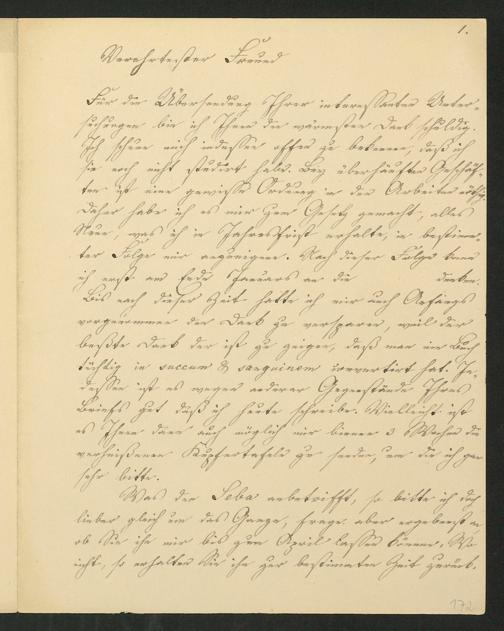 1.
Verehrtester Freund
Für die Übersendung Ihrer interessanten Unter-
suchungen bin ich Ihnen den wärmsten Dank schuldig.
Ich scheue mich indessen offen zu bekennen, daß ich
sie noch nicht studirt habe. Bey überhäuften Geschäf-
ten ist eine gewisse Ordnung in den Arbeiten nöthig.
Daher habe ich es mir zum Gesetz gemacht, alles
Neue, was ich in Jahresfrist erhalte, in bestimm-
ter Folge mir anzueignen. Nach dieser Folge kann
ich erst am Ende Januars an die denken.
Bis nach dieser Zeit hatte ich mir auch Anfangs
vorgenommen den Dank zu versparen, weil der
beßte Dank der ist zu zeigen, daß man ein Buch
tüchtig in succum & sanguinem convertirt hat. In-
dessen ist es wegen anderer Gegenstände Ihres
Briefs gut daß ich heute schreibe. Vielleicht ist
es Ihnen dann auch möglich mir binnen 3 Wochen die
verheißenen Kupfertafeln zu senden, um die ich gar
sehr bitte.
Was den Seba anbetrifft, so bitte ich doch
lieber gleich um das Ganze, frage aber ergebenst an
ob Sie ihn mir bis zum April lassen können. Wo
nicht, so erhalten Sie ihn zur bestimmten Zeit zurück.
172